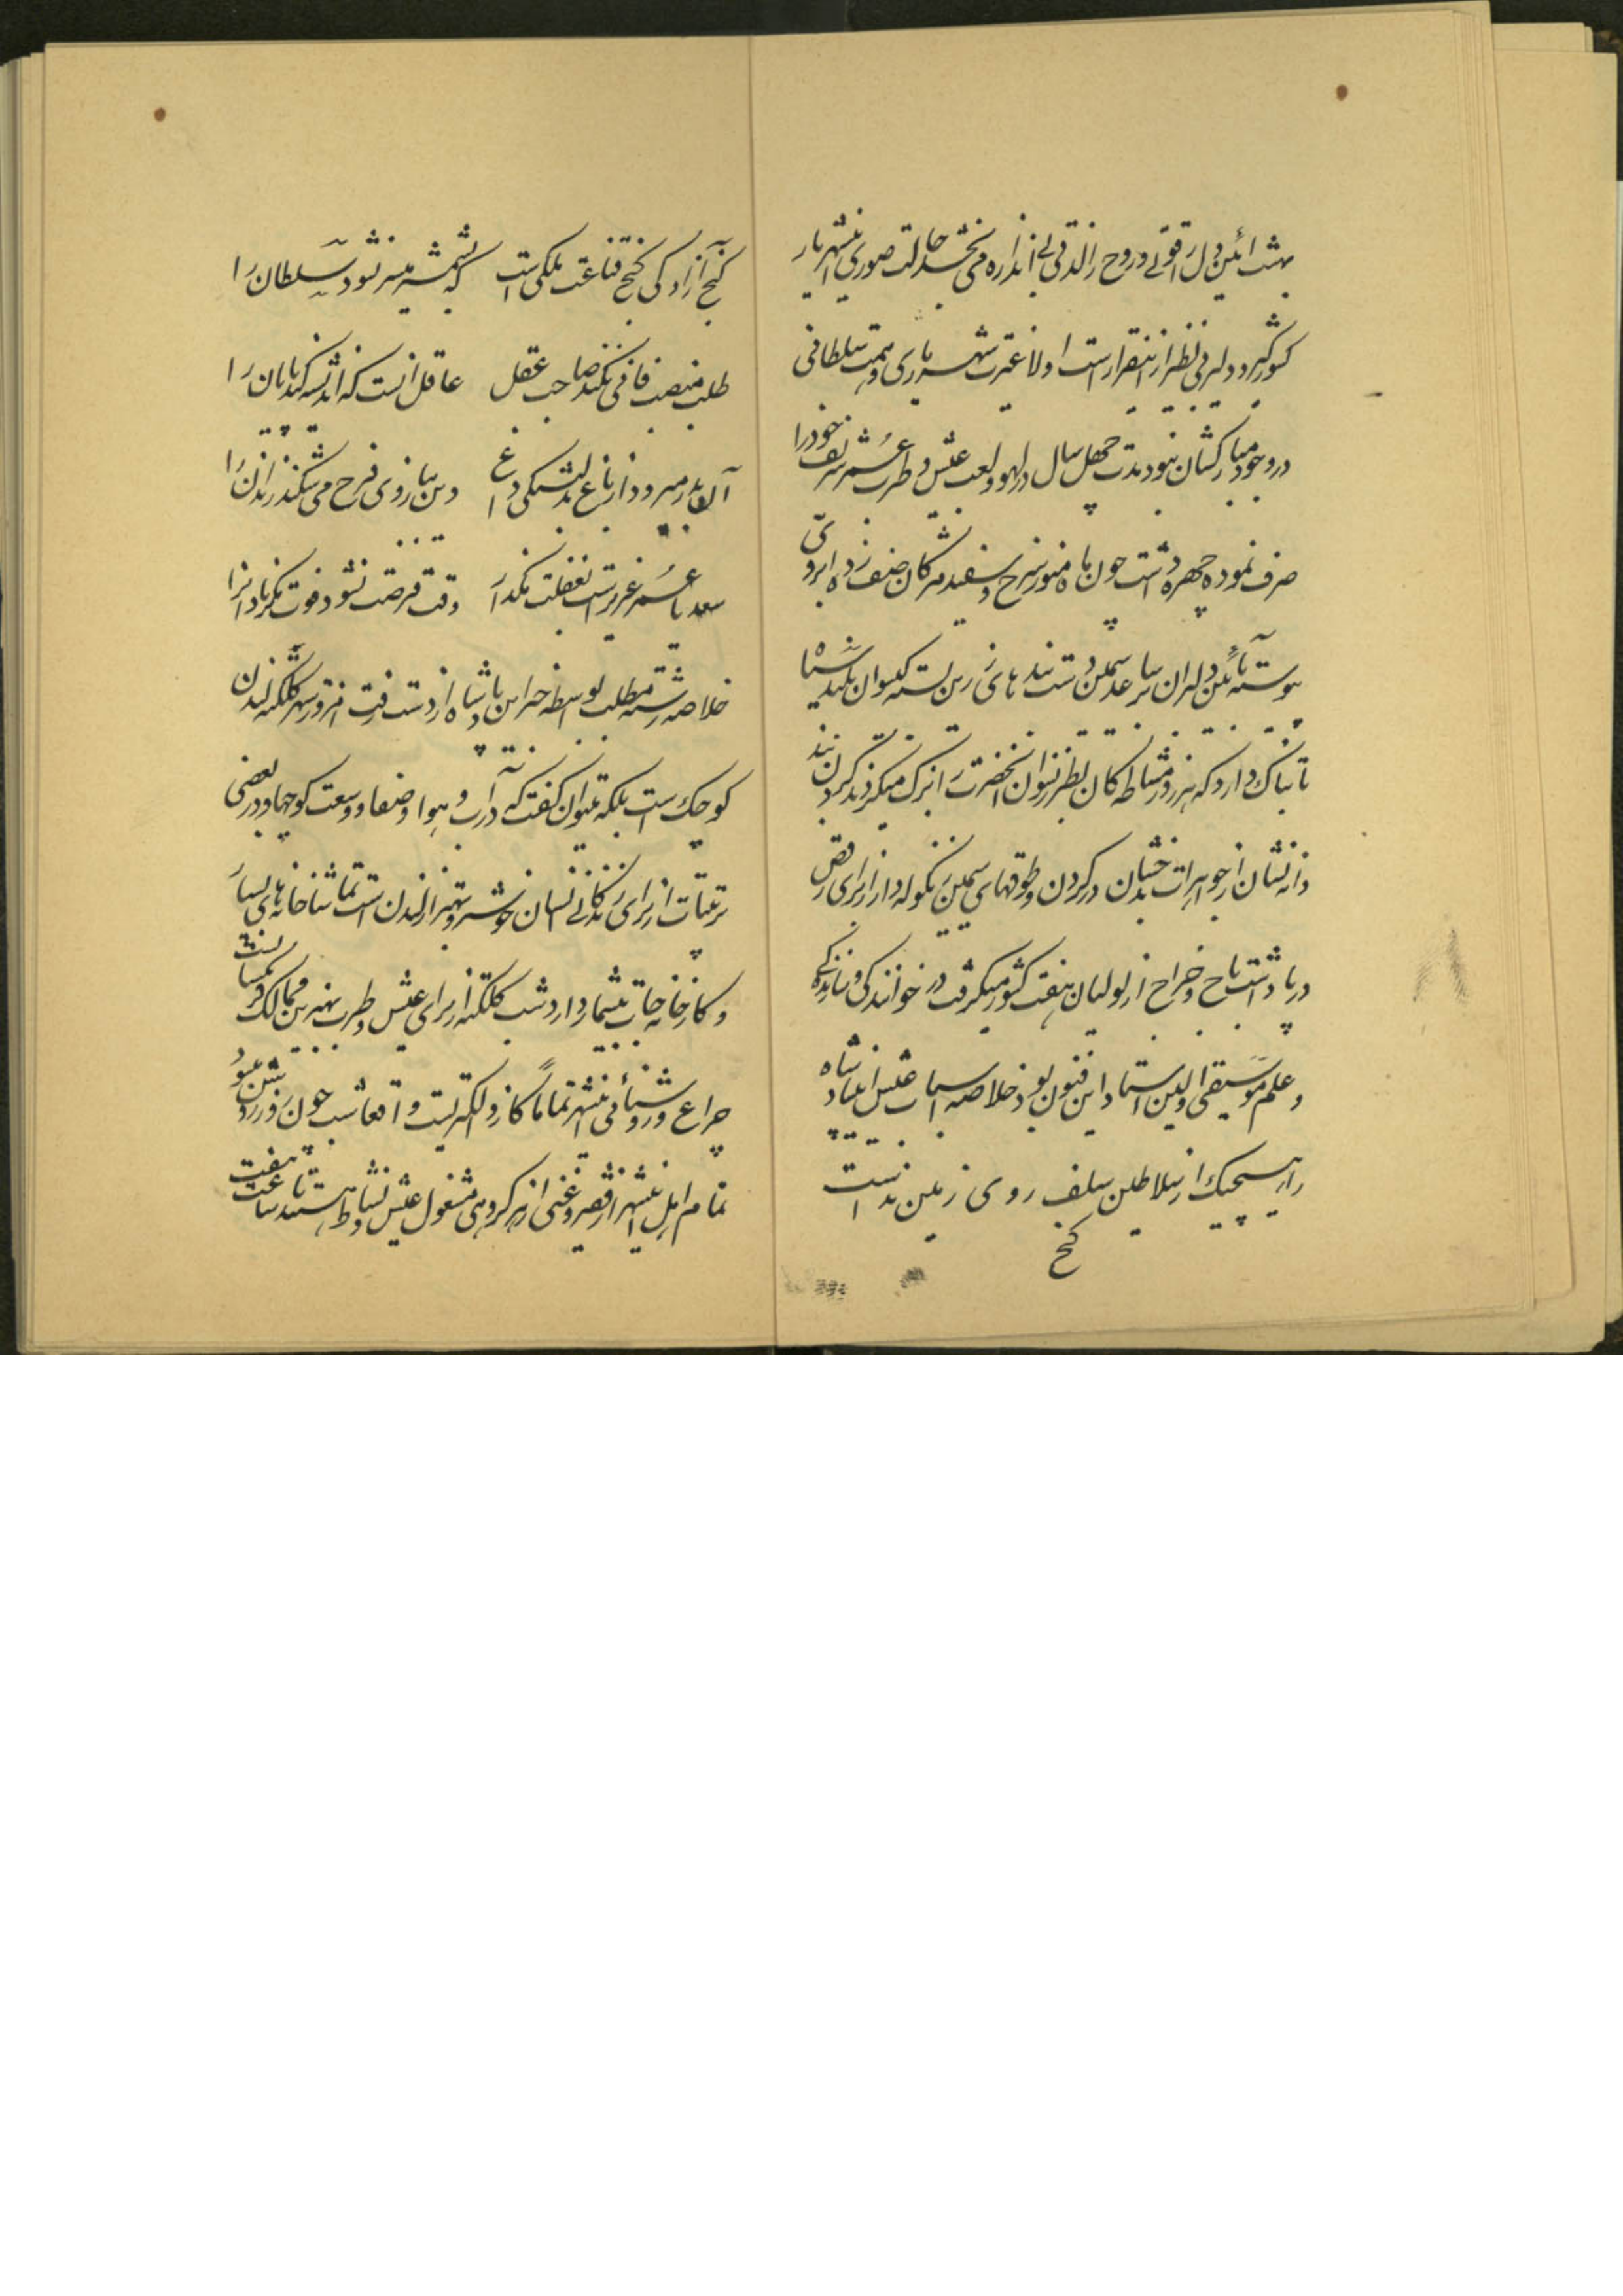 بهشت آئین دل را قوتی و روح را لذتی بی اندازه می بخشد حالت صوری این شهریار
کشورگیر و دلیر بی نظیر از اینقرار است اولا غیرت شهریاری و همت سلطانی
در وجود مبارکشان نبود مدت چهل سال در لهو و لعب عیش و طرب عمر شریف خودرا
صرف نموده چهره داشت چون ماه منور سرخ و سفید مژگان ضعف زده ابروی
پیوسته بآئین دلبران ساعد سیمین دست بند های زرین بسته گیسوان
تابناک دارد که هر روز مشاطه کان بطرز نسوان آنحضرت را بزک میکردند گردن بند
دانه نشان از جواهرات بدخشان در گردن و طوقهای سیمین زنگوله دار از برای رقص
در پا داشت باج و خراج از لولیان هفت کشور میگرفت در خوانندگی و نوازندگی
و علم موسیقی اولین استاد این فنون بود خلاصه اسباب عیش این پادشاه
را هیچیک از سلاطین سلف روی زمین نداشت
گنج
گنج آزادگی و کنج قناعت ملکی است که بشمشیر میسر نشود سلطان را
طلب منصب فانی نکند صاحب عقل عاقل آنست که اندیشه کند پایان را
آن بدر میرود از باغ بدلتنگی و داغ وین ببازوی فرح می شکند زندان را
سعدیا عمر عزیز است بغفلت مگذار وقت فرصت نشود فوت مگر نادانرا
خلاصه رشته مطلب بواسطه حرا این پادشاه از دست رفت امروز شهر کلکته لندن
کوچک است بلکه میتوان گفت که در آب و هوا و صفا و وسعت کوچها و در بعضی
ترتیبات از برای زندگانی انسان خوشتر و بهتر از لندن است تماشاخانه های بسیار
و کارخانه جات بیشمار دارد شب کلکته از برای عیش و طرب بهترین ممالک
چراغ و روشنائی اینشهر تماماً گاز و لکتریست واقعا شب چون روز روشن میشود
تمام اهل اینشهر از فقیر و غنی از هر گروهی مشغول عیش و نشاط هستند تا ساعت هفت